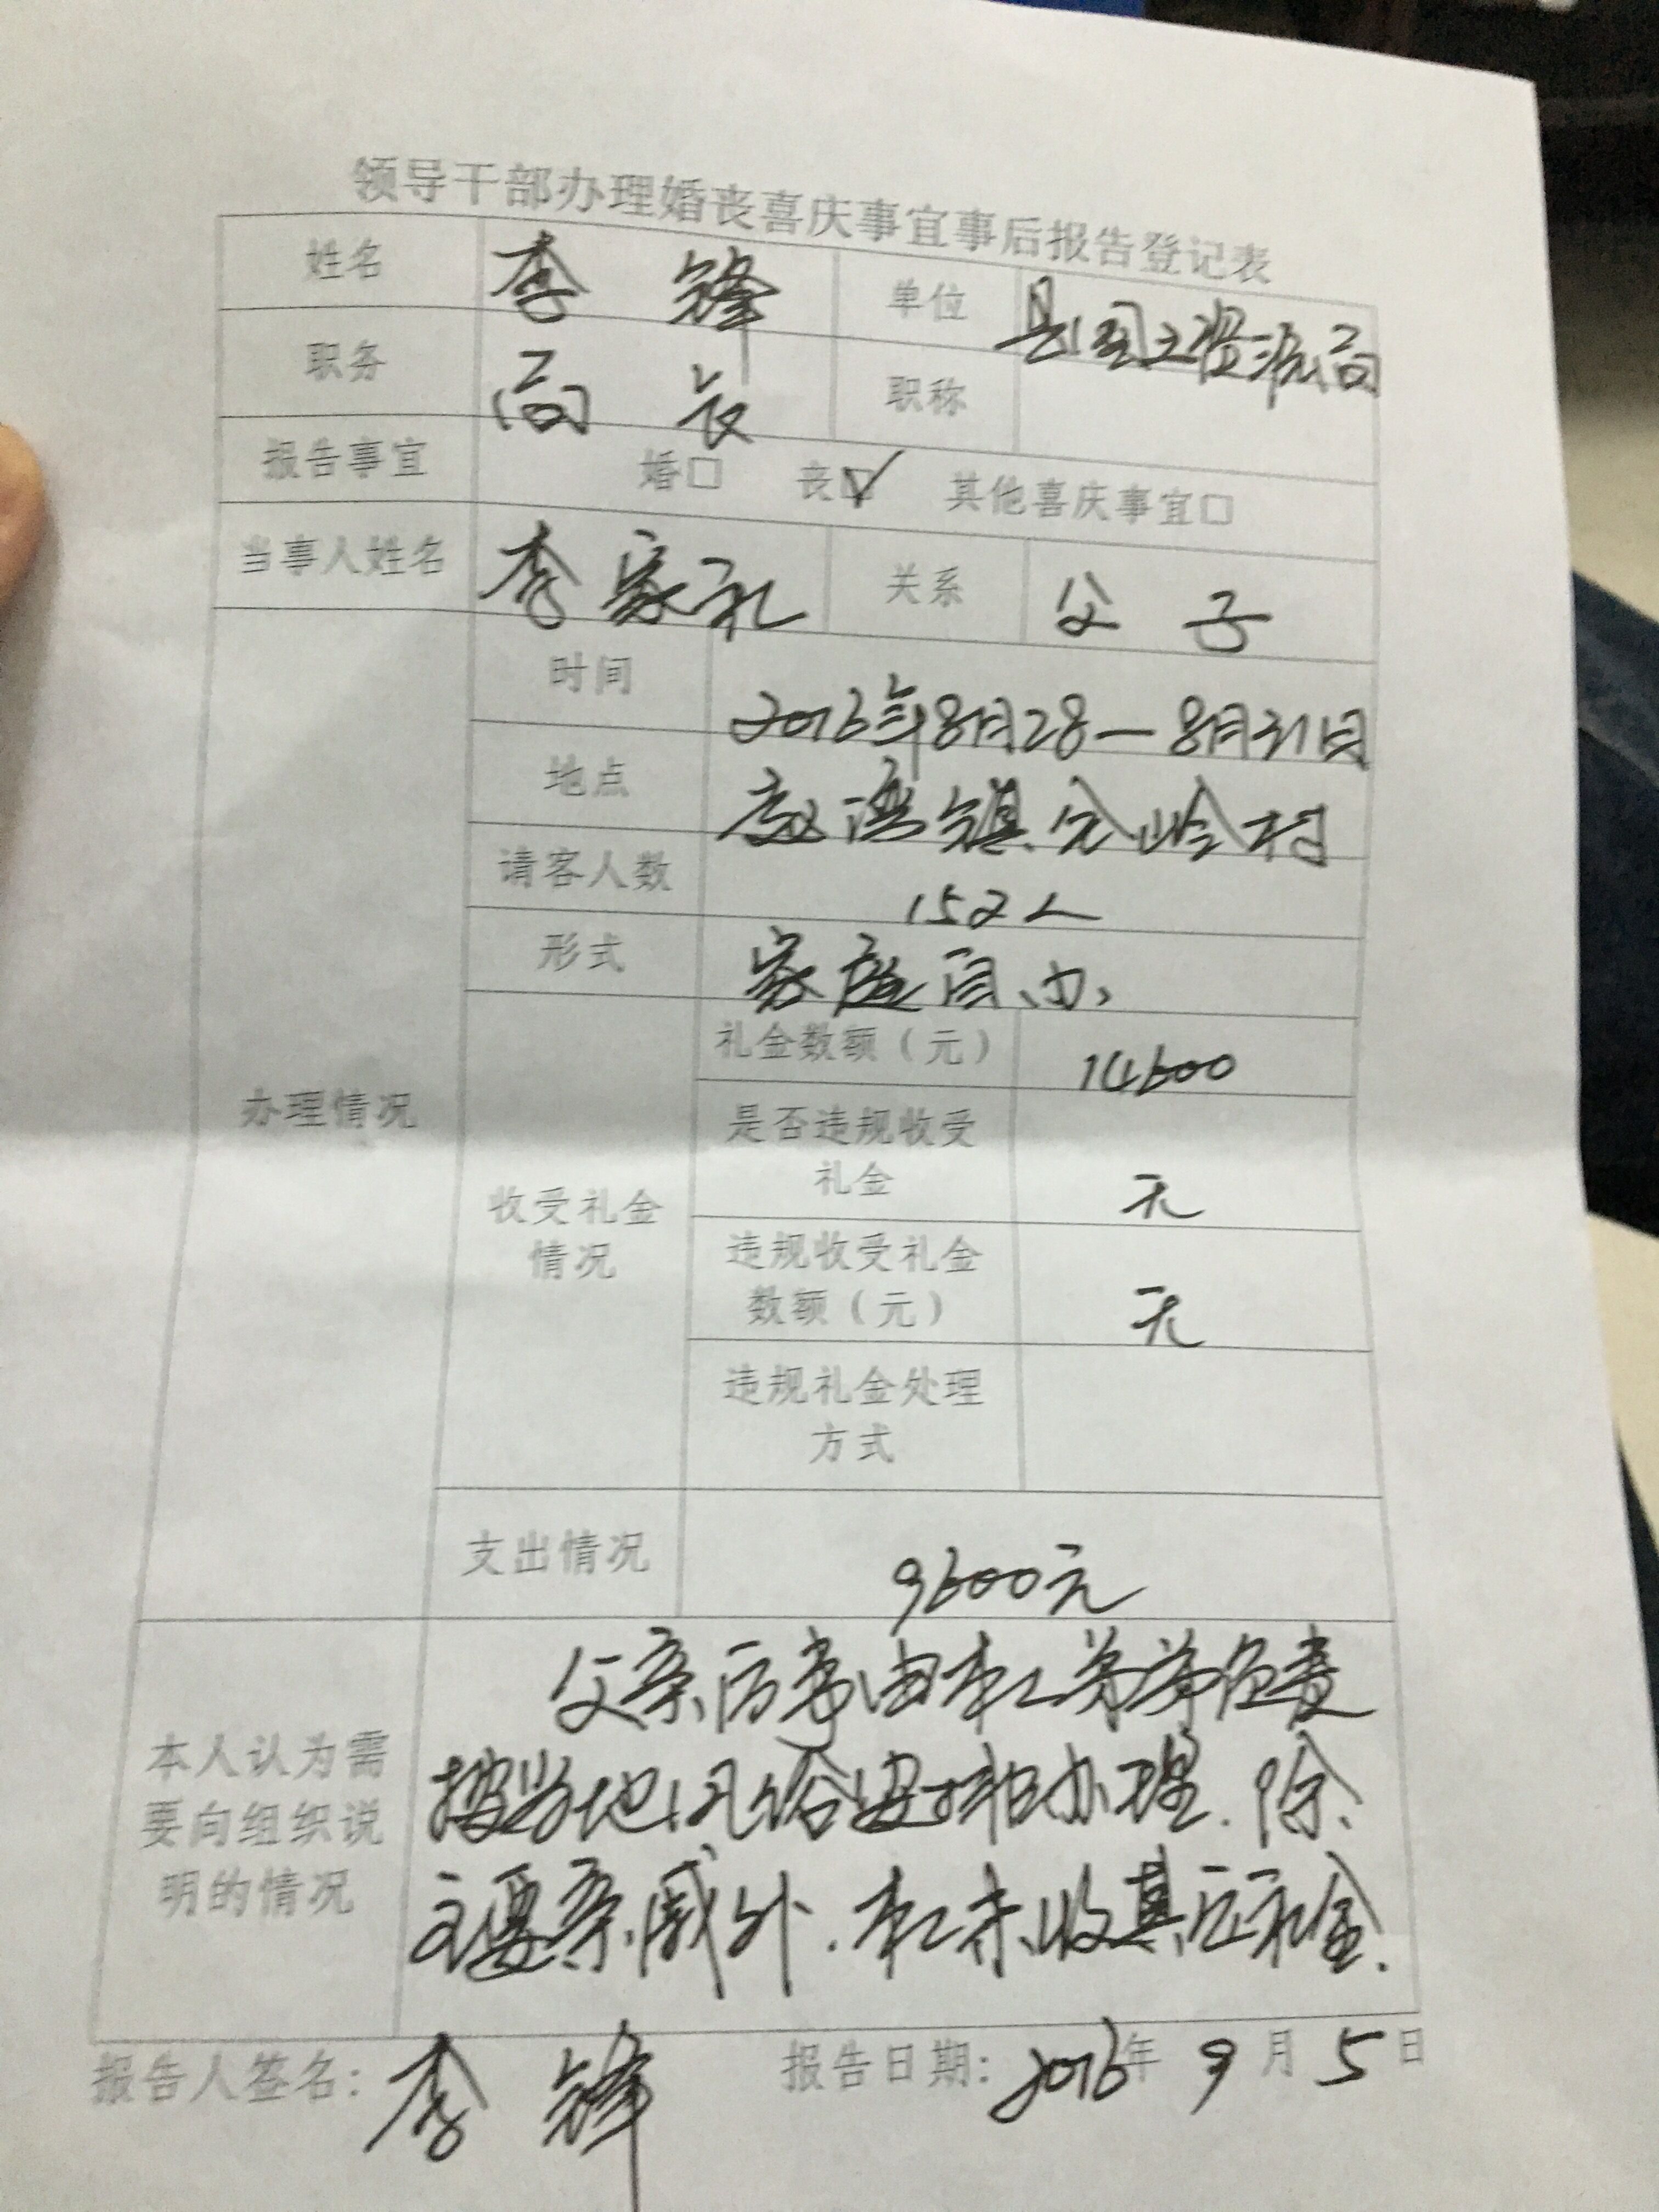 领导干部办理婚丧喜庆事宜事后报告登记表
姓名 李锋 单位 县国土资源局
职务 局长 职称
报告事宜 婚□ 丧☑ 其他喜庆事宜□
当事人姓名 李家礼 关系 父子
时间 2016年8月28—8月31日
地点 镇分岭村
请客人数 152人
形式 家庭自办
办理情况
收受礼金
情况
礼金数额（元） 14600
是否违规收受
礼金 无
违规收受礼金
数额（元） 无
违规礼金处理
方式
支出情况 9600元
本人认为需
要向组织说
明的情况
父亲后事由本人弟弟负责
按当地风俗安排办理.除
主要亲戚外.本人未收其应礼金.
报告人签名: 李锋 报告日期: 2016年9月5日